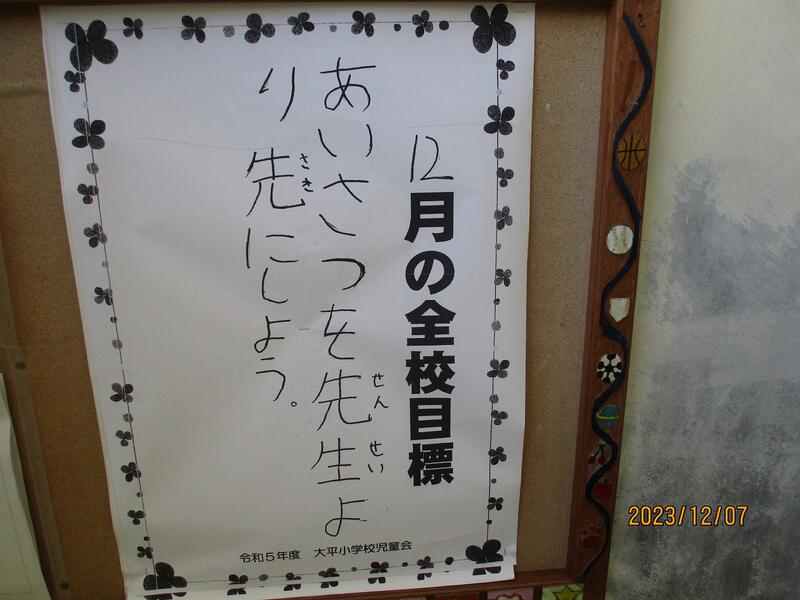 12月の全校目標
あいさつを先生よ
せんせい
り先にしよう。
さき
令和5年度 大平小学校児童会
2023/12/07